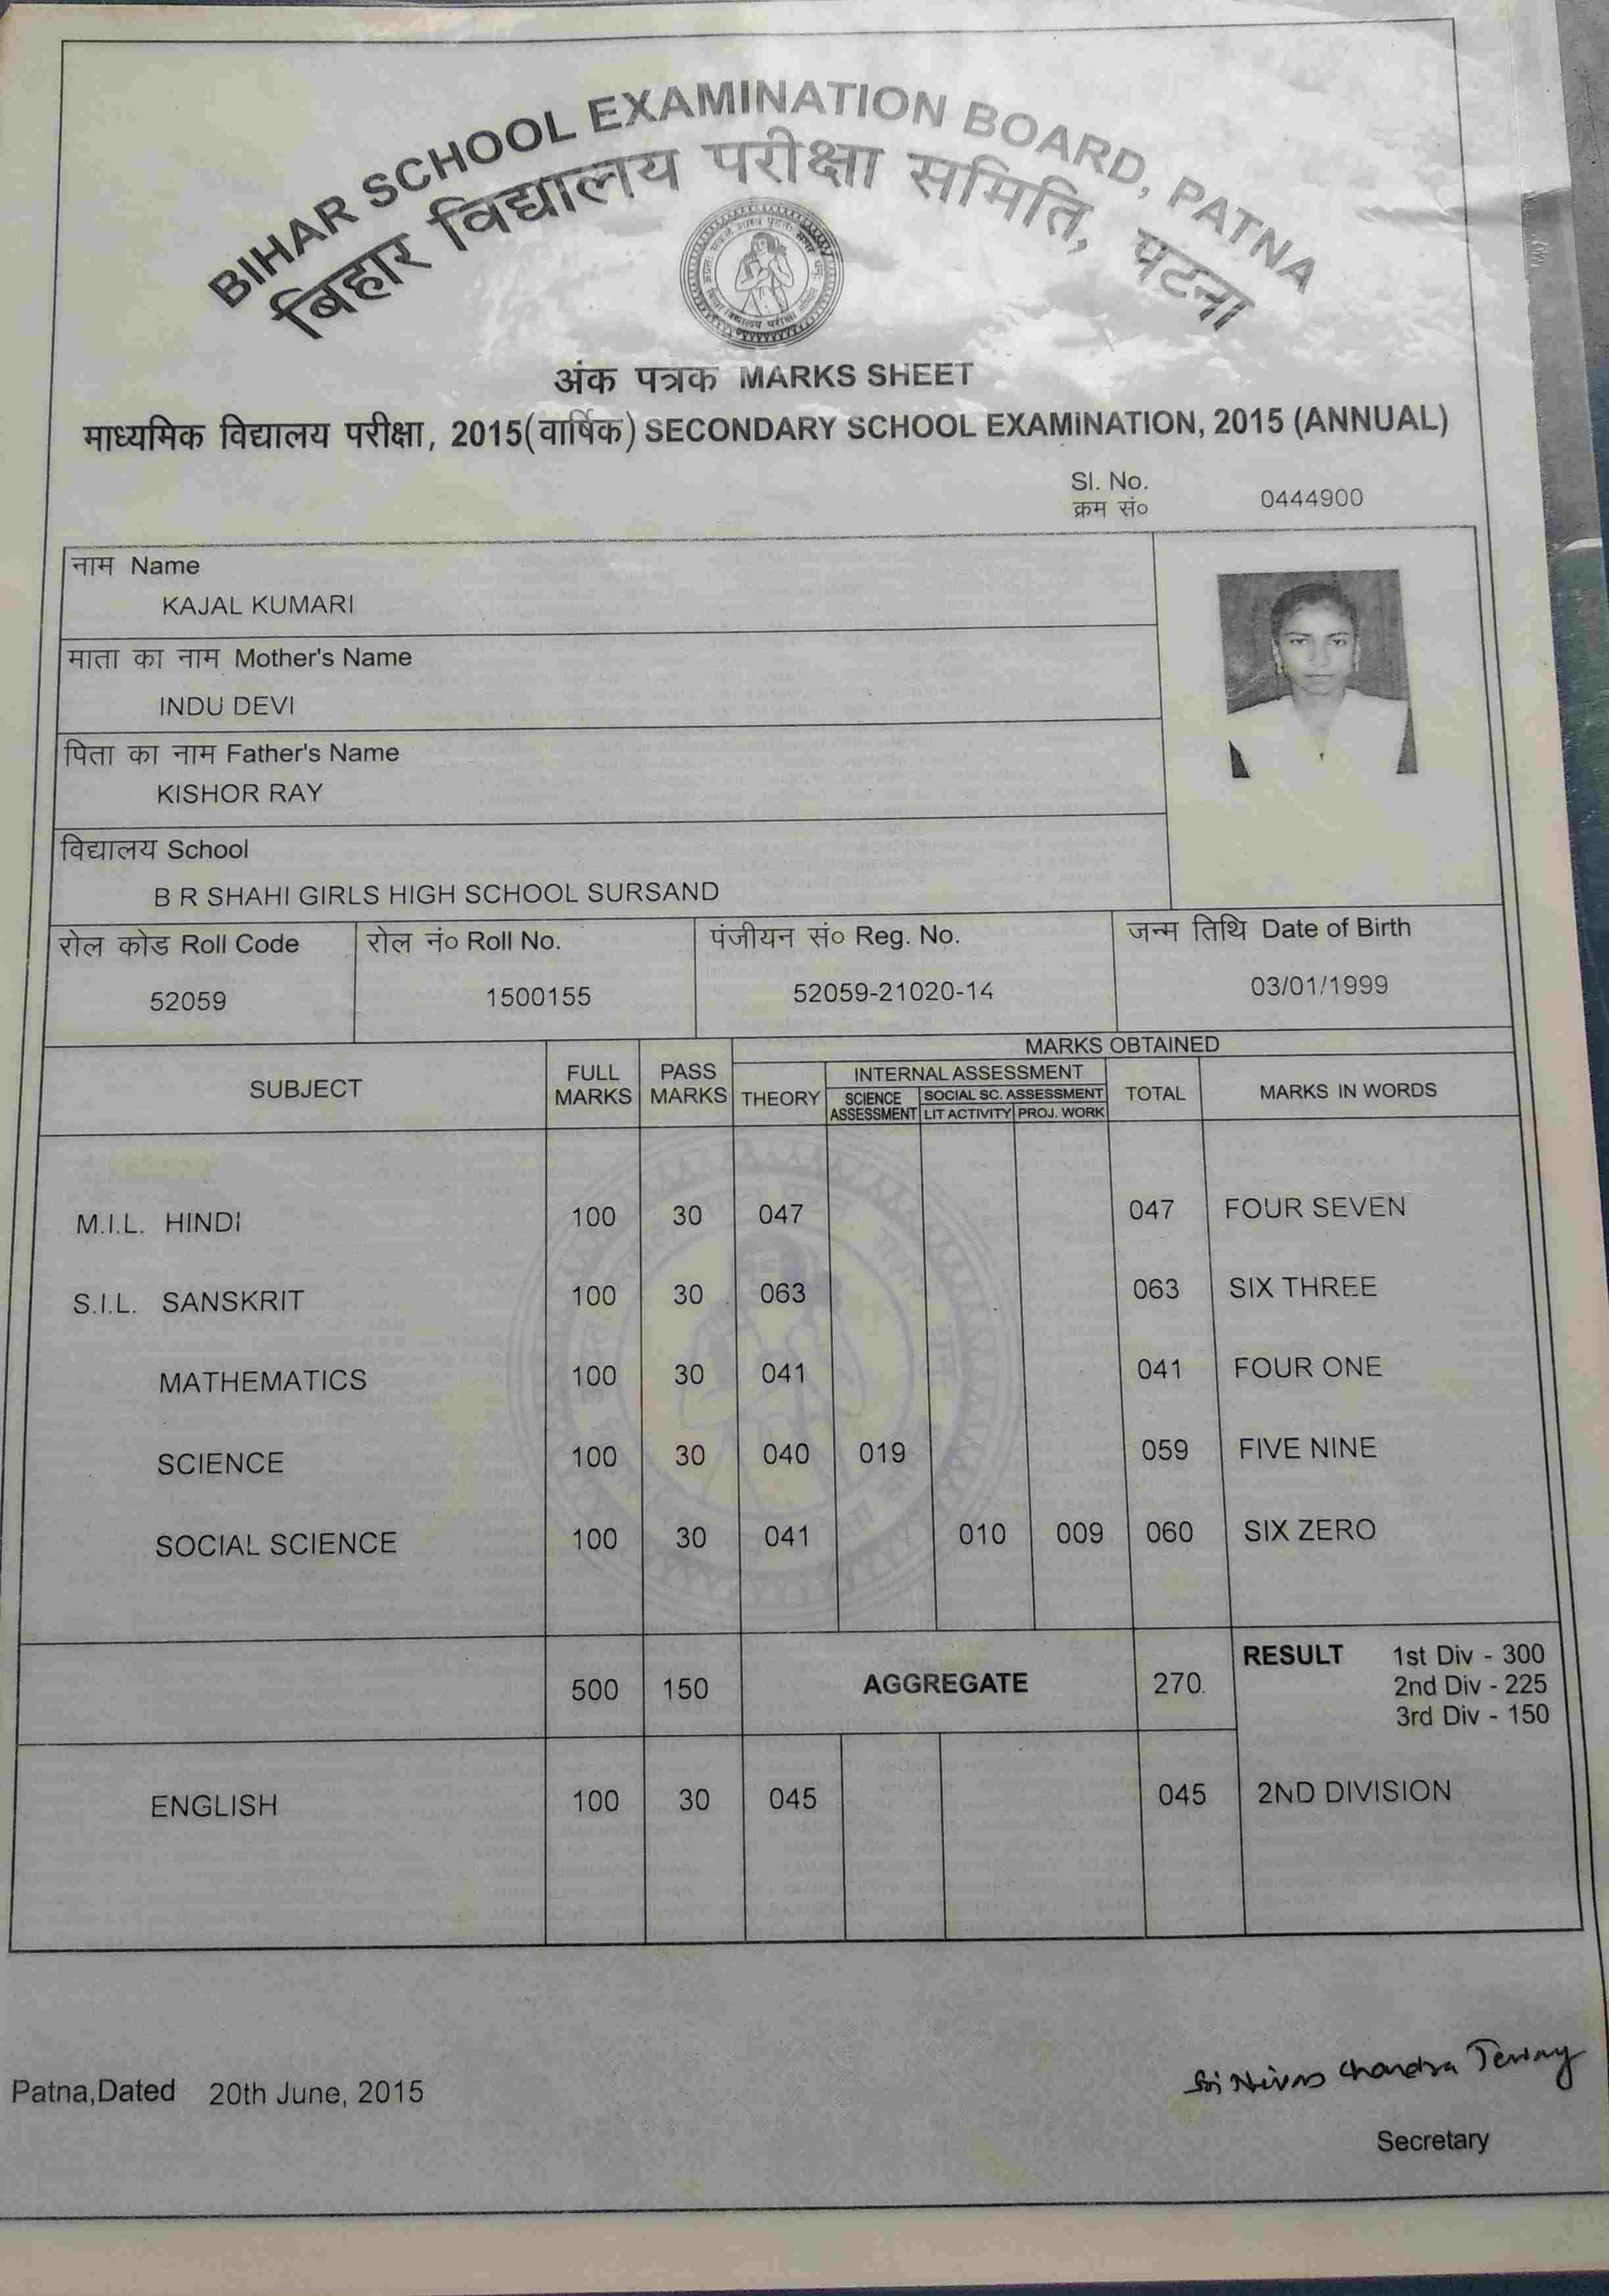 BIHAR SCHOOL EXAMINATION BOARD, PATNA
बिहार विद्यालय परीक्षा समिति, पटना
अंक पत्रक MARKS SHEET
माध्यमिक विद्यालय परीक्षा, 2015(वार्षिक) SECONDARY SCHOOL EXAMINATION, 2015 (ANNUAL)
Sl. No.
क्रम सं० 0444900
नाम Name
KAJAL KUMARI
माता का नाम Mother's Name
INDU DEVI
पिता का नाम Father's Name
KISHOR RAY
विद्यालय School
B R SHAHI GIRLS HIGH SCHOOL SURSAND
रोल कोड Roll Code रोल नं० Roll No. पंजीयन सं० Reg. No. जन्म तिथि Date of Birth
52059 1500155 52059-21020-14 03/01/1999
SUBJECT FULL MARKS PASS MARKS MARKS OBTAINED
THEORY INTERNAL ASSESSMENT TOTAL MARKS IN WORDS
SCIENCE ASSESSMENT SOCIAL SC. ASSESSMENT
LIT ACTIVITY PROJ. WORK
M.I.L. HINDI 100 30 047 047 FOUR SEVEN
S.I.L. SANSKRIT 100 30 063 063 SIX THREE
MATHEMATICS 100 30 041 041 FOUR ONE
SCIENCE 100 30 040 019 059 FIVE NINE
SOCIAL SCIENCE 100 30 041 010 009 060 SIX ZERO
500 150 AGGREGATE 270 RESULT 1st Div - 300
2nd Div - 225
3rd Div - 150
ENGLISH 100 30 045 045 2ND DIVISION
Patna,Dated 20th June, 2015
Chandra
Secretary